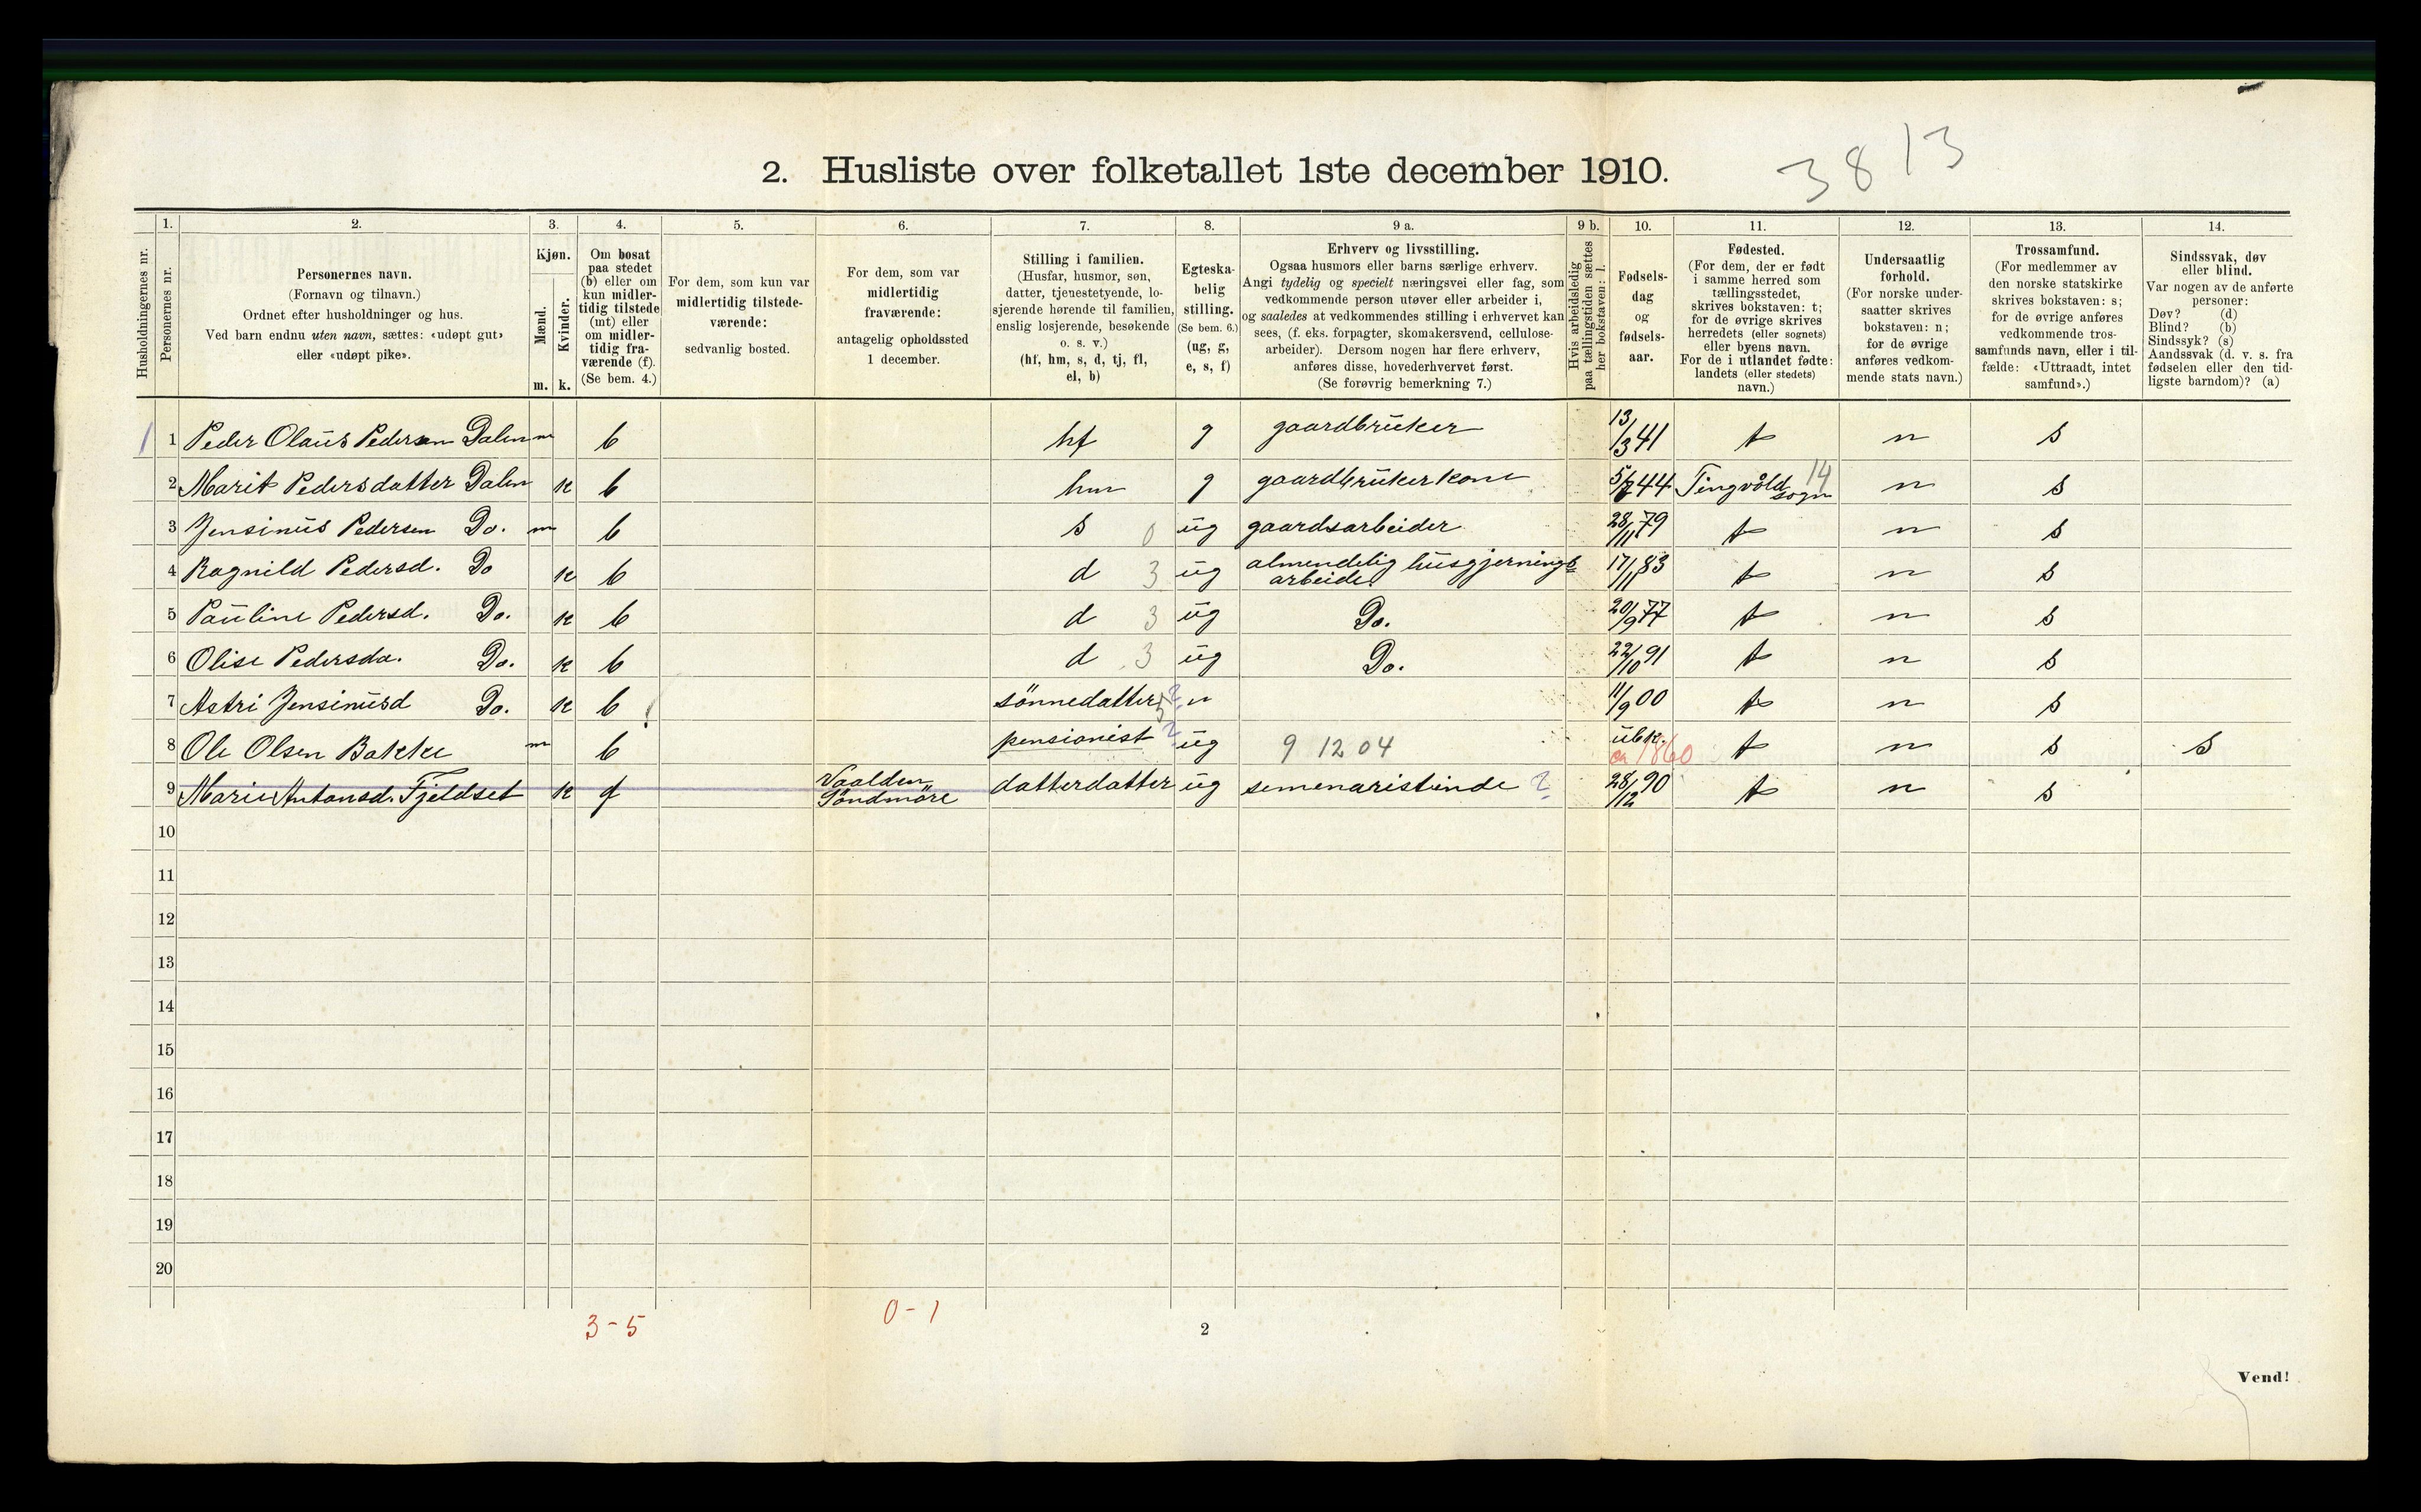 3813
2. Husliste over folketallet 1ste december 1910.
Husholdningernes nr.
1.
Personernes nr.
2.
Personernes navn.
(Fornavn og tilnavn.)
Ordnet efter husholdninger og hus.
Ved barn endnu uten navn, sættes: «udøpt gut»
eller «udøpt pike».
3.
Kjøn.
Mænd.
Kvinder.
m. k.
4.
Om bosat
paa stedet
(b) eller om
kun midler-
tidig tilstede
(mt) eller
om midler-
tidig fra-
værende (f).
(Se bem. 4.)
5.
For dem, som kun var
midlertidig tilstede-
værende:
sedvanlig bosted.
6.
For dem, som var
midlertidig
fraværende:
antagelig opholdssted
1 december.
7.
Stilling i familien.
(Husfar, husmor, søn,
datter, tjenestetyende, lo-
sjerende hørende til familien,
enslig losjerende, besøkende
o. s. v.)
(hf, hm, s, d, tj, fl,
el, b)
8.
Egteska-
belig
stilling.
(Se bem. 6.)
(ug, g,
e, s, f)
9 a.
Erhverv og livsstilling.
Ogsaa husmors eller barns særlige erhverv.
Angi tydelig og specielt næringsvei eller fag, som
vedkommende person utøver eller arbeider i,
og saaledes at vedkommendes stilling i erhvervet kan
sees, (f. eks. forpagter, skomakersvend, cellulose-
arbeider). Dersom nogen har flere erhverv,
anføres disse, hovederhvervet først.
(Se forøvrig bemerkning 7.)
9 b.
Hvis arbeidsledig
paa tællingstiden sættes
her bokstaven: l.
10.
Fødsels-
dag
og
fødsels-
aar.
11.
Fødested.
(For dem, der er født
i samme herred som
tællingsstedet,
skrives bokstaven: t;
for de øvrige skrives
herredets (eller sognets)
eller byens navn.
For de i utlandet fødte:
landets (eller stedets)
navn.)
12.
Undersaatlig
forhold.
(For norske under-
saatter skrives
bokstaven: n;
for de øvrige
anføres vedkom-
mende stats navn.)
13.
Trossamfund.
(For medlemmer av
den norske statskirke
skrives bokstaven: s;
for de øvrige anføres
vedkommende tros-
samfunds navn, eller i til-
fælde: «Uttraadt, intet
samfund».)
14.
Sindssvak, døv
eller blind.
Var nogen av de anførte
personer:
Døv? (d)
Blind? (b)
Sindssyk? (s)
Aandssvak (d. v. s. fra
fødselen eller den tid-
ligste barndom)? (a)
1 1 Peder Olaüs Pedersen Dalen m b hf g gaardbrüker 13/3 41 t n s
2 Marit Pedersdatter Dalen k b hm g gaardbrükerkone 5/ 44 Tingvold sogn 14 n s
3 Jensinüs Pedersen Do. m b s 0 üg gaardsarbeider 28/11 79 t n s
4 Ragnild Pedersd. Do k b d 3 üg almendelig hüsgjernings arbeide. 17/11 83 t n s
5 Paüline Pedersd. Do. k b d 3 üg Do. 20/9 77 t n s
6 Olise Pedersda. Do. k b d 3 üg Do. 22/10 91 t n s
7 Astri Jensinüsd Do. k b sönnedatter 5 ? n 11/9 00 t n s
8 Ole Olsen Bakke m b pensionist ? üg 9 12 04 übk. ca 1860 t n s s
9 Marie Antonsd. Fjeldset k f Vaalden Söndmöre datterdatter üg semenaristinde ? 28/12 90 t n s
10
11
12
13
14
15
16
17
18
19
20
3-5
0-1
2
Vend!